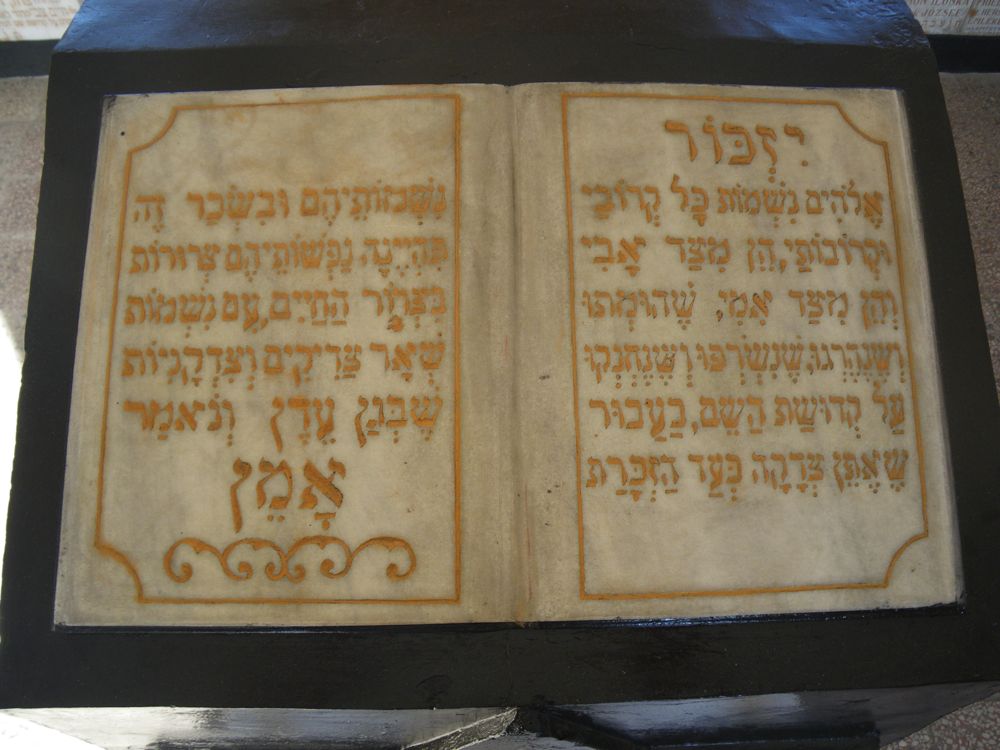 יִזְכּוֹר
אֱלֹהִים נִשְׁמוֹת כָּל קְרוֹבַי
וּקְרוֹבוֹתַי, הֵן מִצַד אָבִי
וְהֵן מִצַד אִמִי, שֶׁהוּמְתוּ
וְשֶׁנֶהֶרְגוּ, שֶׁנִשְׂרְפוּ וְשֶׁנֶחְנְקוּ
עַל קְדוּשַׁת הַשֵׁם, בַּעֲבוּר
שֶׁאֶתֵּן צְדָקָה בְּעַד הַזְכָּרַת
נִשְׁמוֹתֵיהֶם וּבִשְׂכַר זֶה
תִּהְיֶינָה נַפְשׁוֹתֵיהֶם צְרוּרוֹת
בִּצְרוֹר הַחַיִים, עִם נִשְׁמוֹת
שְׁאָר צַדִיקִים וְצִדְקָנִיוֹת
שֶׁבְּגַן עֵדֶן וְנֹאמַר
אָמֵן
JÓZSEF